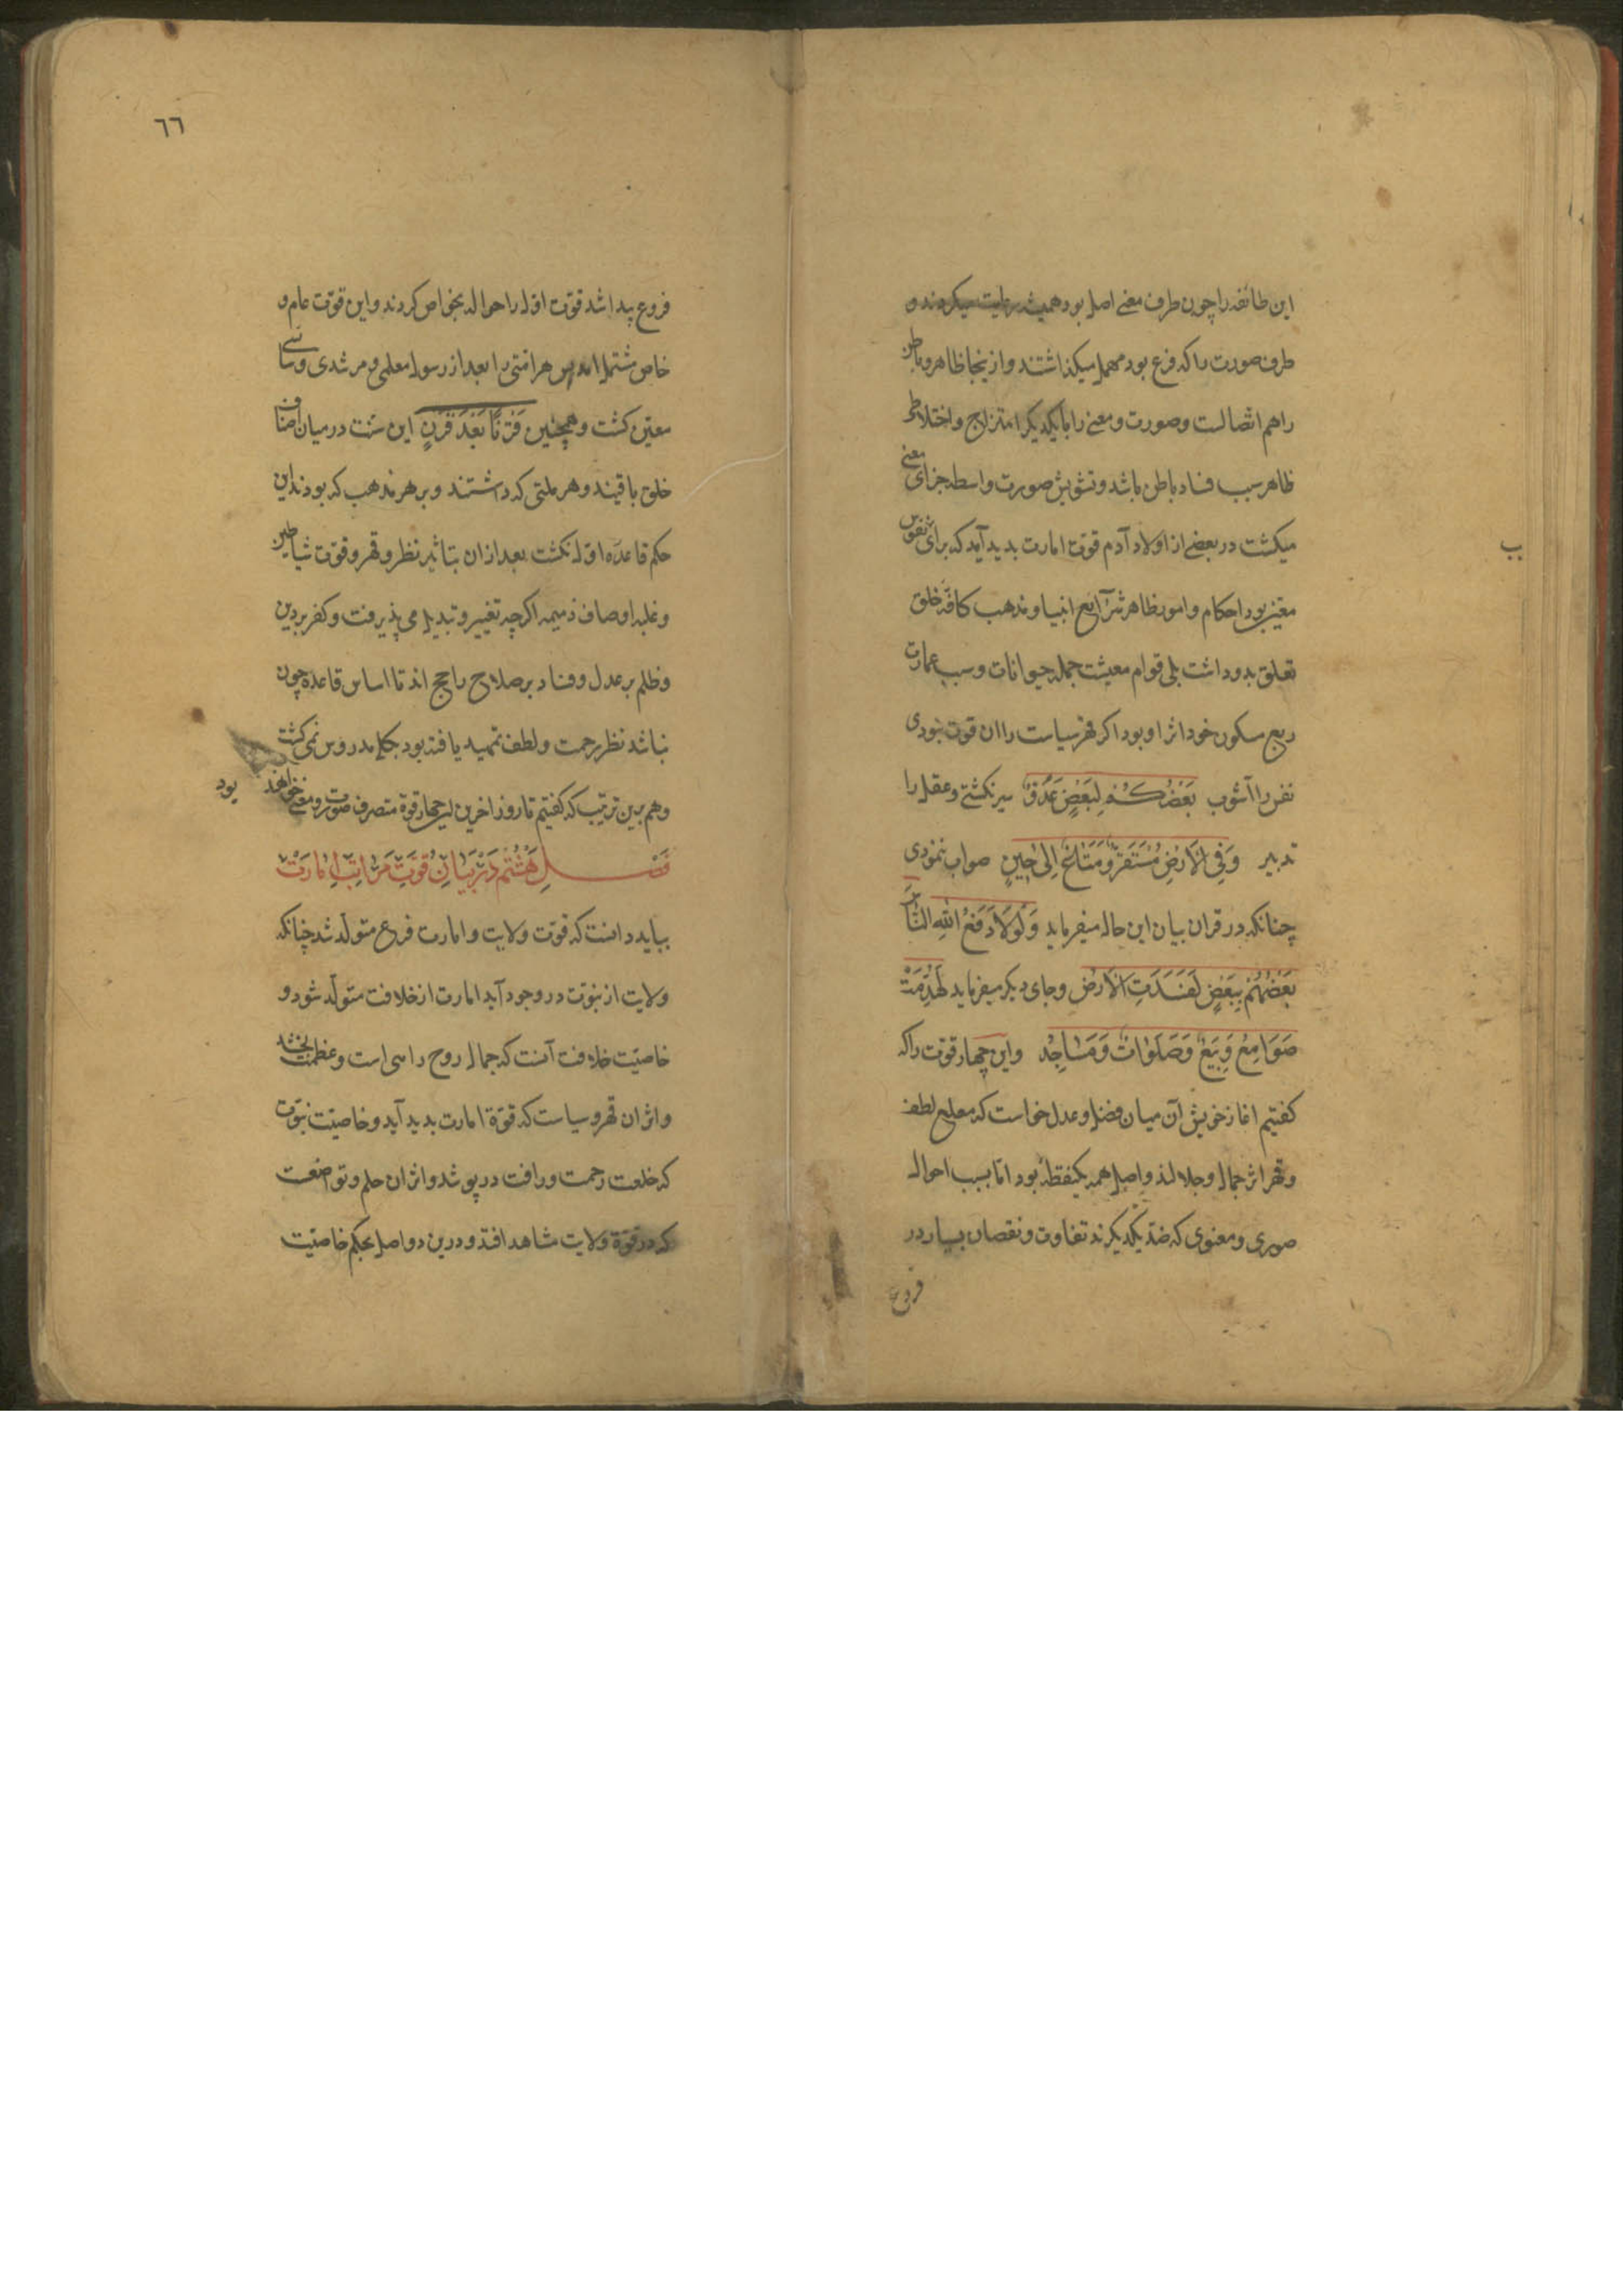 این طائفه را چون طرف معنی اصل بود همیشه رعایت میکردند و
طرف صورت را که فرع بود مهمل میکذاشتند و ازینجا ظاهر و باطن
را هم اتصالست و صورت و معنی را با یکدیکر امتزاج و اختلاط
ظاهر سبب فساد باطن باشد و تشویش صورت واسطه جزای معنی
میکشت در بعضی از اولاد آدم قوت امارت بدید آمد که برای نفوس
معین بود احکام و امور ظاهر شرآیع انبیا و مذهب کافّه خلق
تعلق بدو داشت بلی قوام معیشت جمله حیوانات و سبب عمارت
ربع مسکون خود اثر او بود اکر قهر سیاست را ان قوت نبودی
نفس را آشوب بَعْضُكُمْ لِبَعْضٍ عَدُوٌّ سیر نکشتی و عقل را
تدبیر وَفِي الْاَرْضِ مُسْتَقَرٌّ وَمَتَاعٌ اِلٰى حِينٍ صواب ننمودی
چنانکه در قران بیان این حال میفرماید وَلَوْلَا دَفْعُ اللّٰهِ النَّاسَ
بَعْضُهُمْ بِبَعْضٍ لَفَسَدَتِ الْاَرْضُ و جای دیکر میفرماید لَهُدِّمَتْ
صَوَامِعُ وَبِيَعٌ وَصَلَوٰاتٌ وَمَسَاجِدُ و این چهار قوّت را که
کفتیم اغاز خویش آن میان فضل و عدل خواست که معلع لطف
و قهر اثر جمال و جلالند و اصل همه یکنقطه بود امّا بسبب احوال
صوری و معنوی که ضدّ یکدیکرند تفاوت و نقصان بسیار در
فروع
ب
٦٦
فروع پیدا شد قوّت اوّل را حواله بخواص کردند و این قوّت عام و
خاص مشتمل امد پس هر امّتی را بعد از رسول معلمی و مرشدی و سائسی
معیّن کشت و همچنین قَرْنًا بَعْدَ قَرْنٍ این سنّت در میان اصناف
خلق باقیند و هر ملتی که داشتند و بر هر مذهب که بودند این
حکم قاعدۀ اوّل نکشت بعد ازان بتاثیر نظر و قهر و قوّت شیاطین
و غلبه اوصاف ذمیمه اکرچه تغییر و تبدیل می پذیرفت و کفر بر دین
و ظلم بر عدل و فساد بر صلاح راجح اند تا اساس قاعده چون
نباشد نظر رحمت و لطف تمهید یافته بود جکله مدروس نمی کشت
و هم برین ترتیب که کفتیم تا روز اخرین این چهار قوّة متصرف صورت و معنی خواهند بود
فصل هشتم در بیان قوّت مراتب امارت
بباید دانست که قوّت ولایت و امارت فرع متولّد شد چنانکه
ولایت از نبوّت در وجود آید امارت از خلافت متولّد شود و
خاصیّت خلافت آنست که جمال روح را سی است و عظمت بخشد
و اثر ان قهر و سیاست که قوّة امارت بدید آید و خاصیّت نبوّت
که خلعت رحمت و رافت در پوشد و اثر ان حلم و تواضعست
که در قوّة ولایت مشاهد افتد و درین دو اصل بحکم خاصیّت